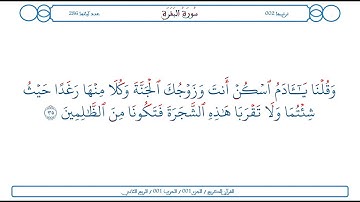 ترتيبها 002
سُورَةُ البَقَرَةِ
عدد آياتها 286
وَقُلْنَا يَـٰٓـَٔادَمُ ٱسْكُنْ أَنتَ وَزَوْجُكَ ٱلْجَنَّةَ وَكُلَا مِنْهَا رَغَدًا حَيْثُ
شِئْتُمَا وَلَا تَقْرَبَا هَـٰذِهِ ٱلشَّجَرَةَ فَتَكُونَا مِنَ ٱلظَّـٰلِمِينَ ٣٥
القرآن الكريم / الجزء 001 / الحزب 001 / الربع الثاني